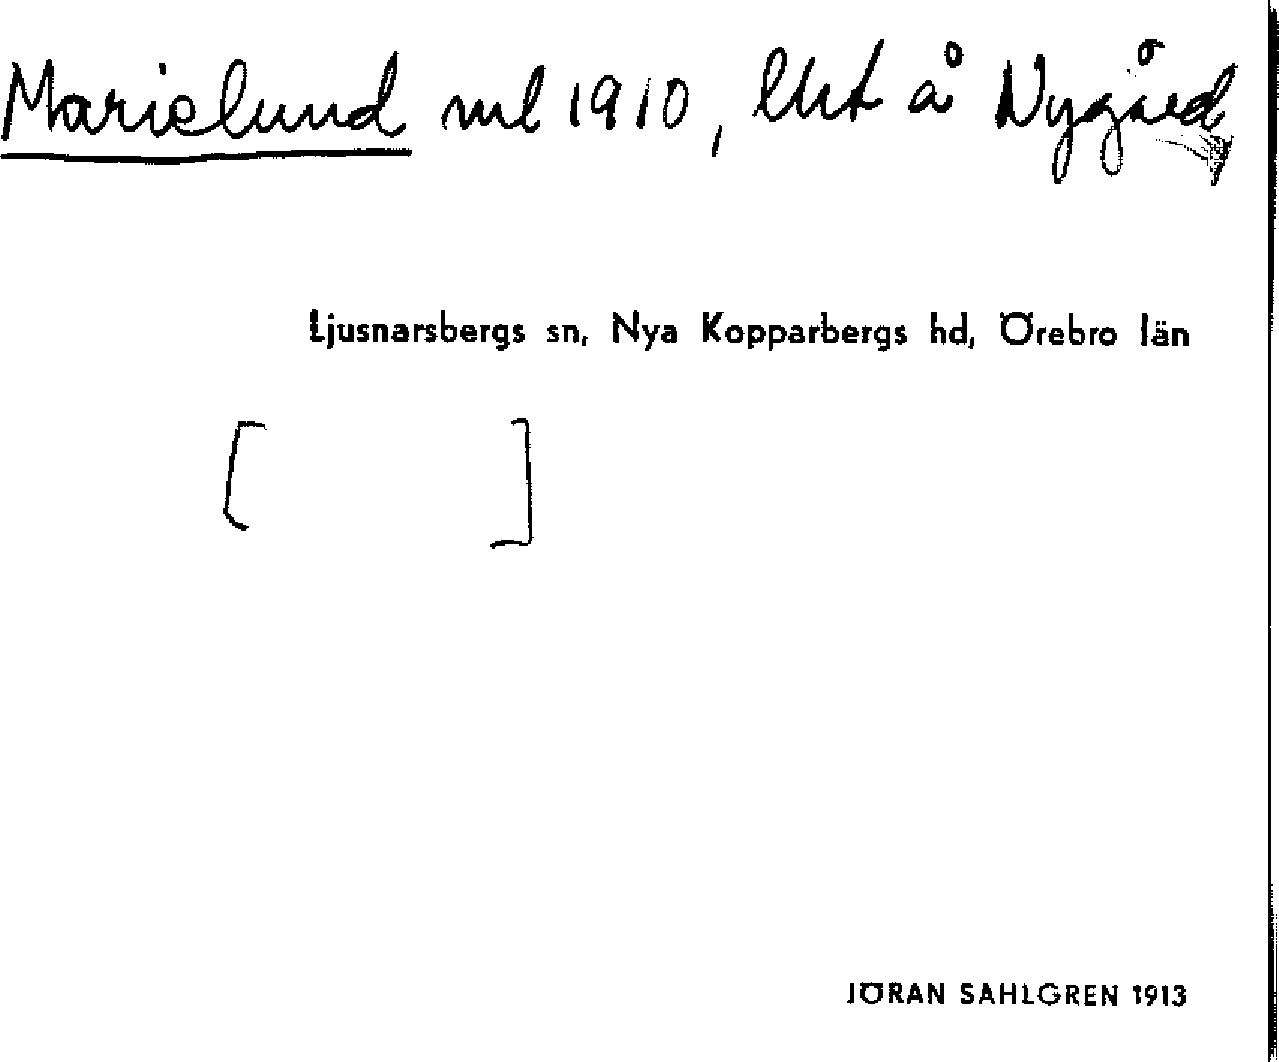 Marielund ml 1910, lht å Nygård
Ljusnarsbergs sn, Nya Kopparbergs hd, Örebro län
[ ]
JÖRAN SAHLGREN 1913